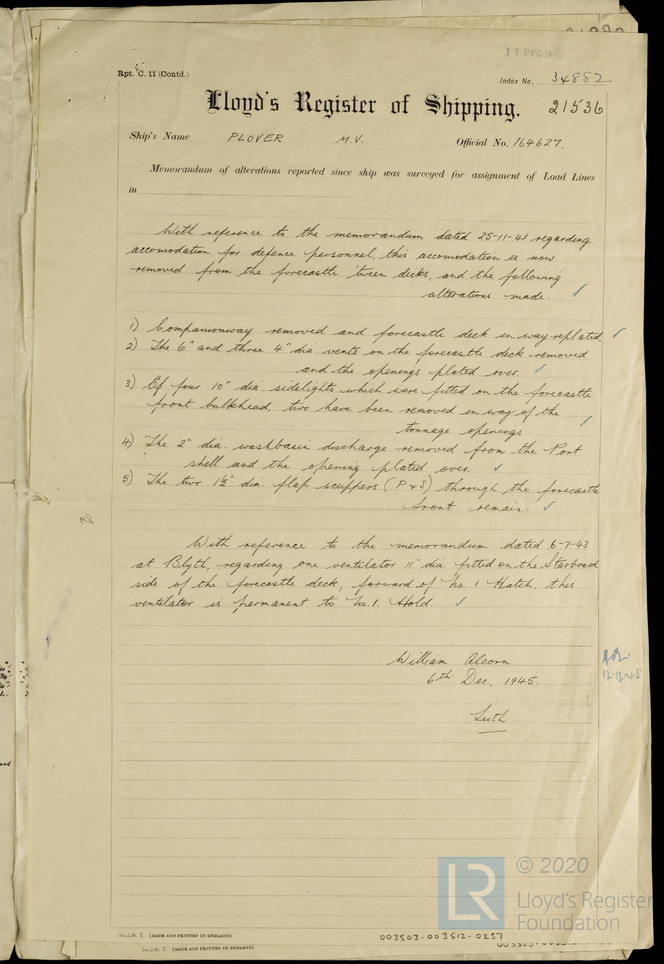 11 DEC 1945
Rpt. C. 11 (Contd.)
Index No. 34882
Lloyd's Register of Shipping. 21536
Ship's Name PLOVER M.V. Official No. 164627.
Memorandum of alterations reported since ship was surveyed for assignment of Load Lines
in
With reference to the memorandum dated 25-11-41 regarding
accomodation for defence personnel, this accomodation is now
removed from the forecastle 'tween decks, and the following
alterations made. ✓
1) Companionway removed and forecastle deck in way replated. ✓
2) The 6" and three 4" dia vents on the forecastle deck removed
and the openings plated over. ✓
3) Of four 10" dia. sidelights which were fitted on the forecastle
front bulkhead, two have been removed in way of the
tonnage openings. ✓
4) The 2" dia. washbasin discharge removed from the Port
shell and the opening plated over. ✓
5) The two 1½" dia. flap scuppers (P & S) through the forecastle
front remain. ✓
With reference to the memorandum dated 6-7-43
at Blyth, regarding one ventilator 11" dia fitted on the Starboard
side of the forecastle deck, forward of No. 1 Hatch, this
ventilator is permanent to No. 1. Hold. ✓
William Alcorn
6th Dec, 1945.
12-12-45
Leith.
© 2020
LR
Lloyd's Register
Foundation
(MADE AND PRINTED IN ENGLAND)
003503-003512-0237
(MADE AND PRINTED IN ENGLAND)